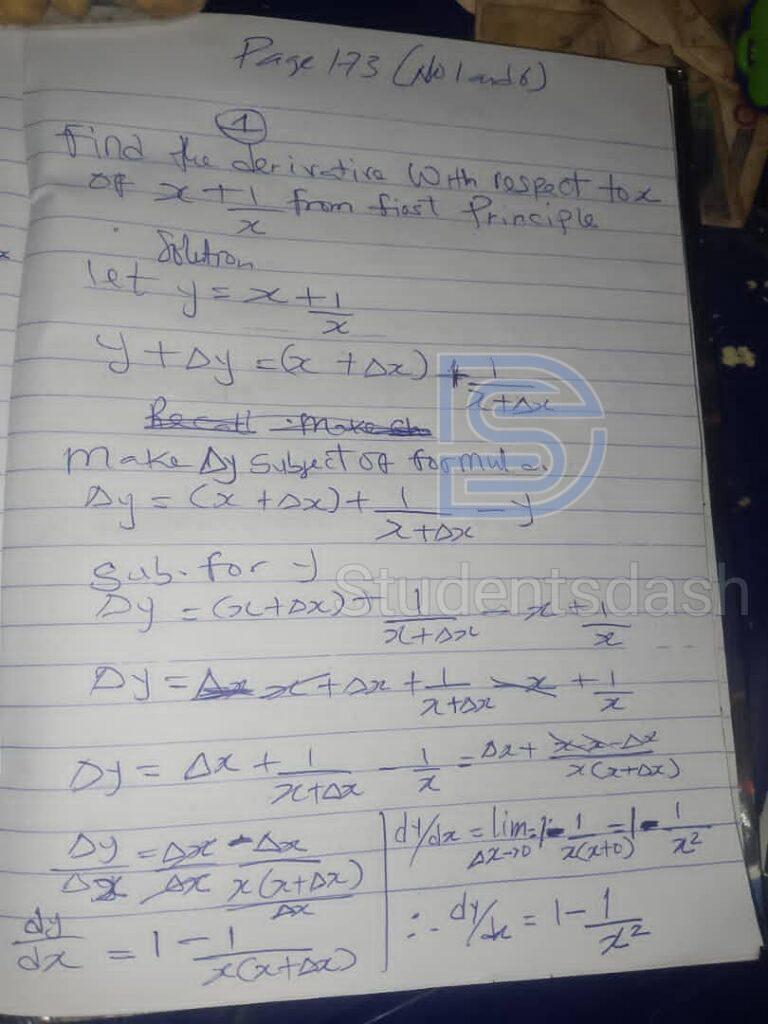 Page 173 (No 1 and 6)
①
Find the derivative With respect to x
of x + 1/x from first Principle
Solution
let y = x + 1/x
y + Δy = (x + Δx) + 1/(x+Δx)
Recall make
Make Δy Subject of formula.
Δy = (x + Δx) + 1/(x+Δx) - y
Sub. for y
Studentsdash
Δy = (x+Δx) + 1/(x+Δx) - x + 1/x
Δy = Δx x + Δx + 1/(x+Δx) - x + 1/x
Δy = Δx + 1/(x+Δx) - 1/x = Δx + (x-x-Δx)/(x(x+Δx))
Δy/Δx = Δx/Δx - Δx/(x(x+Δx))/Δx
dy/dx = 1 - 1/(x(x+Δx))
dy/dx = lim Δx→0 1 - 1/(x(x+0)) = 1 - 1/x²
∴ dy/dx = 1 - 1/x²